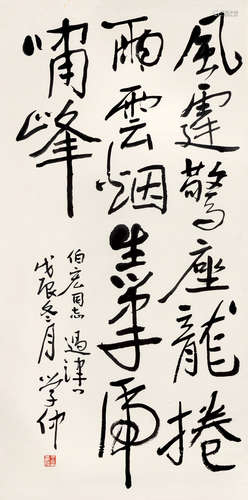 風霆驚座龍捲
雨雲烟筆虎
嘯峰
伯宏同志過津
戊辰冬月学仲